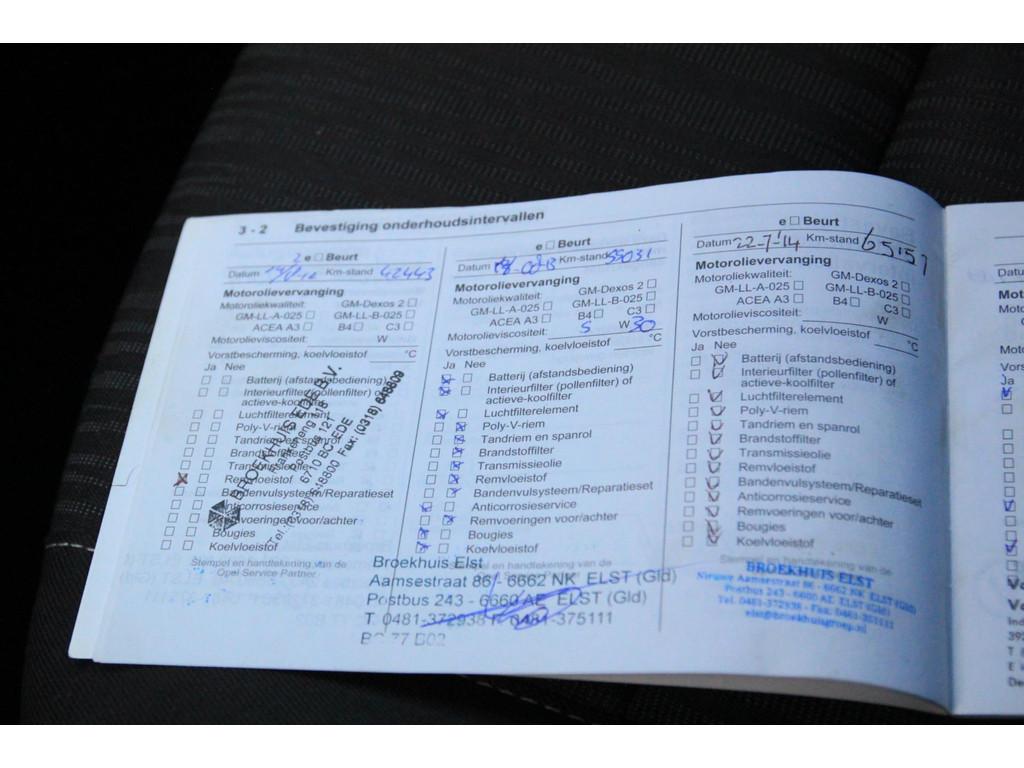 3 - 2 Bevestiging onderhoudsintervallen
2 e ☐ Beurt
Datum Km-stand 42443
Motorolievervanging
Motoroliekwaliteit: GM-Dexos 2 ☐
GM-LL-A-025 ☐ GM-LL-B-025 ☐
ACEA A3 ☐ B4 ☐ C3 ☐
Motorolieviscositeit: W
Vorstbescherming, koelvloeistof °C
Ja Nee
Batterij (afstandsbediening)
Interieurfilter (pollenfilter) of
actieve-koolfilter
Luchtfilterelement
Poly-V-riem
Tandriem en spanrol
Brandstoffilter
Transmissieolie
Remvloeistof
Bandenvulsysteem/Reparatieset
Anticorrosieservice
Remvoeringen voor/achter
Bougies
Koelvloeistof
Stempel en handtekening van de
Opel Service Partner
BROEKHUIS EDE B.V.
Postbus 1218
6710 BC EDE
Tel.: (0318) 648800 Fax: (0318) 648809
e ☐ Beurt
Datum Km-stand 55031
Motorolievervanging
Motoroliekwaliteit: GM-Dexos 2 ☐
GM-LL-A-025 ☐ GM-LL-B-025 ☐
ACEA A3 ☐ B4 ☐ C3 ☐
Motorolieviscositeit: 5 W 30
Vorstbescherming, koelvloeistof °C
Ja Nee
Batterij (afstandsbediening)
Interieurfilter (pollenfilter) of
actieve-koolfilter
Luchtfilterelement
Poly-V-riem
Tandriem en spanrol
Brandstoffilter
Transmissieolie
Remvloeistof
Bandenvulsysteem/Reparatieset
Anticorrosieservice
Remvoeringen voor/achter
Bougies
Koelvloeistof
Broekhuis Elst
Aamsestraat 86 - 6662 NK ELST (Gld)
Postbus 243 - 6660 AE ELST (Gld)
T. 0481-372938 F. 0481-375111
e ☐ Beurt
Datum 22-7-'14 Km-stand 65157
Motorolievervanging
Motoroliekwaliteit: GM-Dexos 2 ☐
GM-LL-A-025 ☐ GM-LL-B-025 ☐
ACEA A3 ☐ B4 ☐ C3 ☐
Motorolieviscositeit: W
Vorstbescherming, koelvloeistof °C
Ja Nee
Batterij (afstandsbediening)
Interieurfilter (pollenfilter) of
actieve-koolfilter
Luchtfilterelement
Poly-V-riem
Tandriem en spanrol
Brandstoffilter
Transmissieolie
Remvloeistof
Bandenvulsysteem/Reparatieset
Anticorrosieservice
Remvoeringen voor/achter
Bougies
Koelvloeistof
Stempel en handtekening van de
BROEKHUIS ELST
Nieuwe Aamsestraat 86 - 6662 NK ELST (Gld)
Postbus 243 - 6660 AE ELST (Gld)
Tel. 0481-372938 - Fax. 0481-351111
elst@broekhuisgroep.nl
Ja